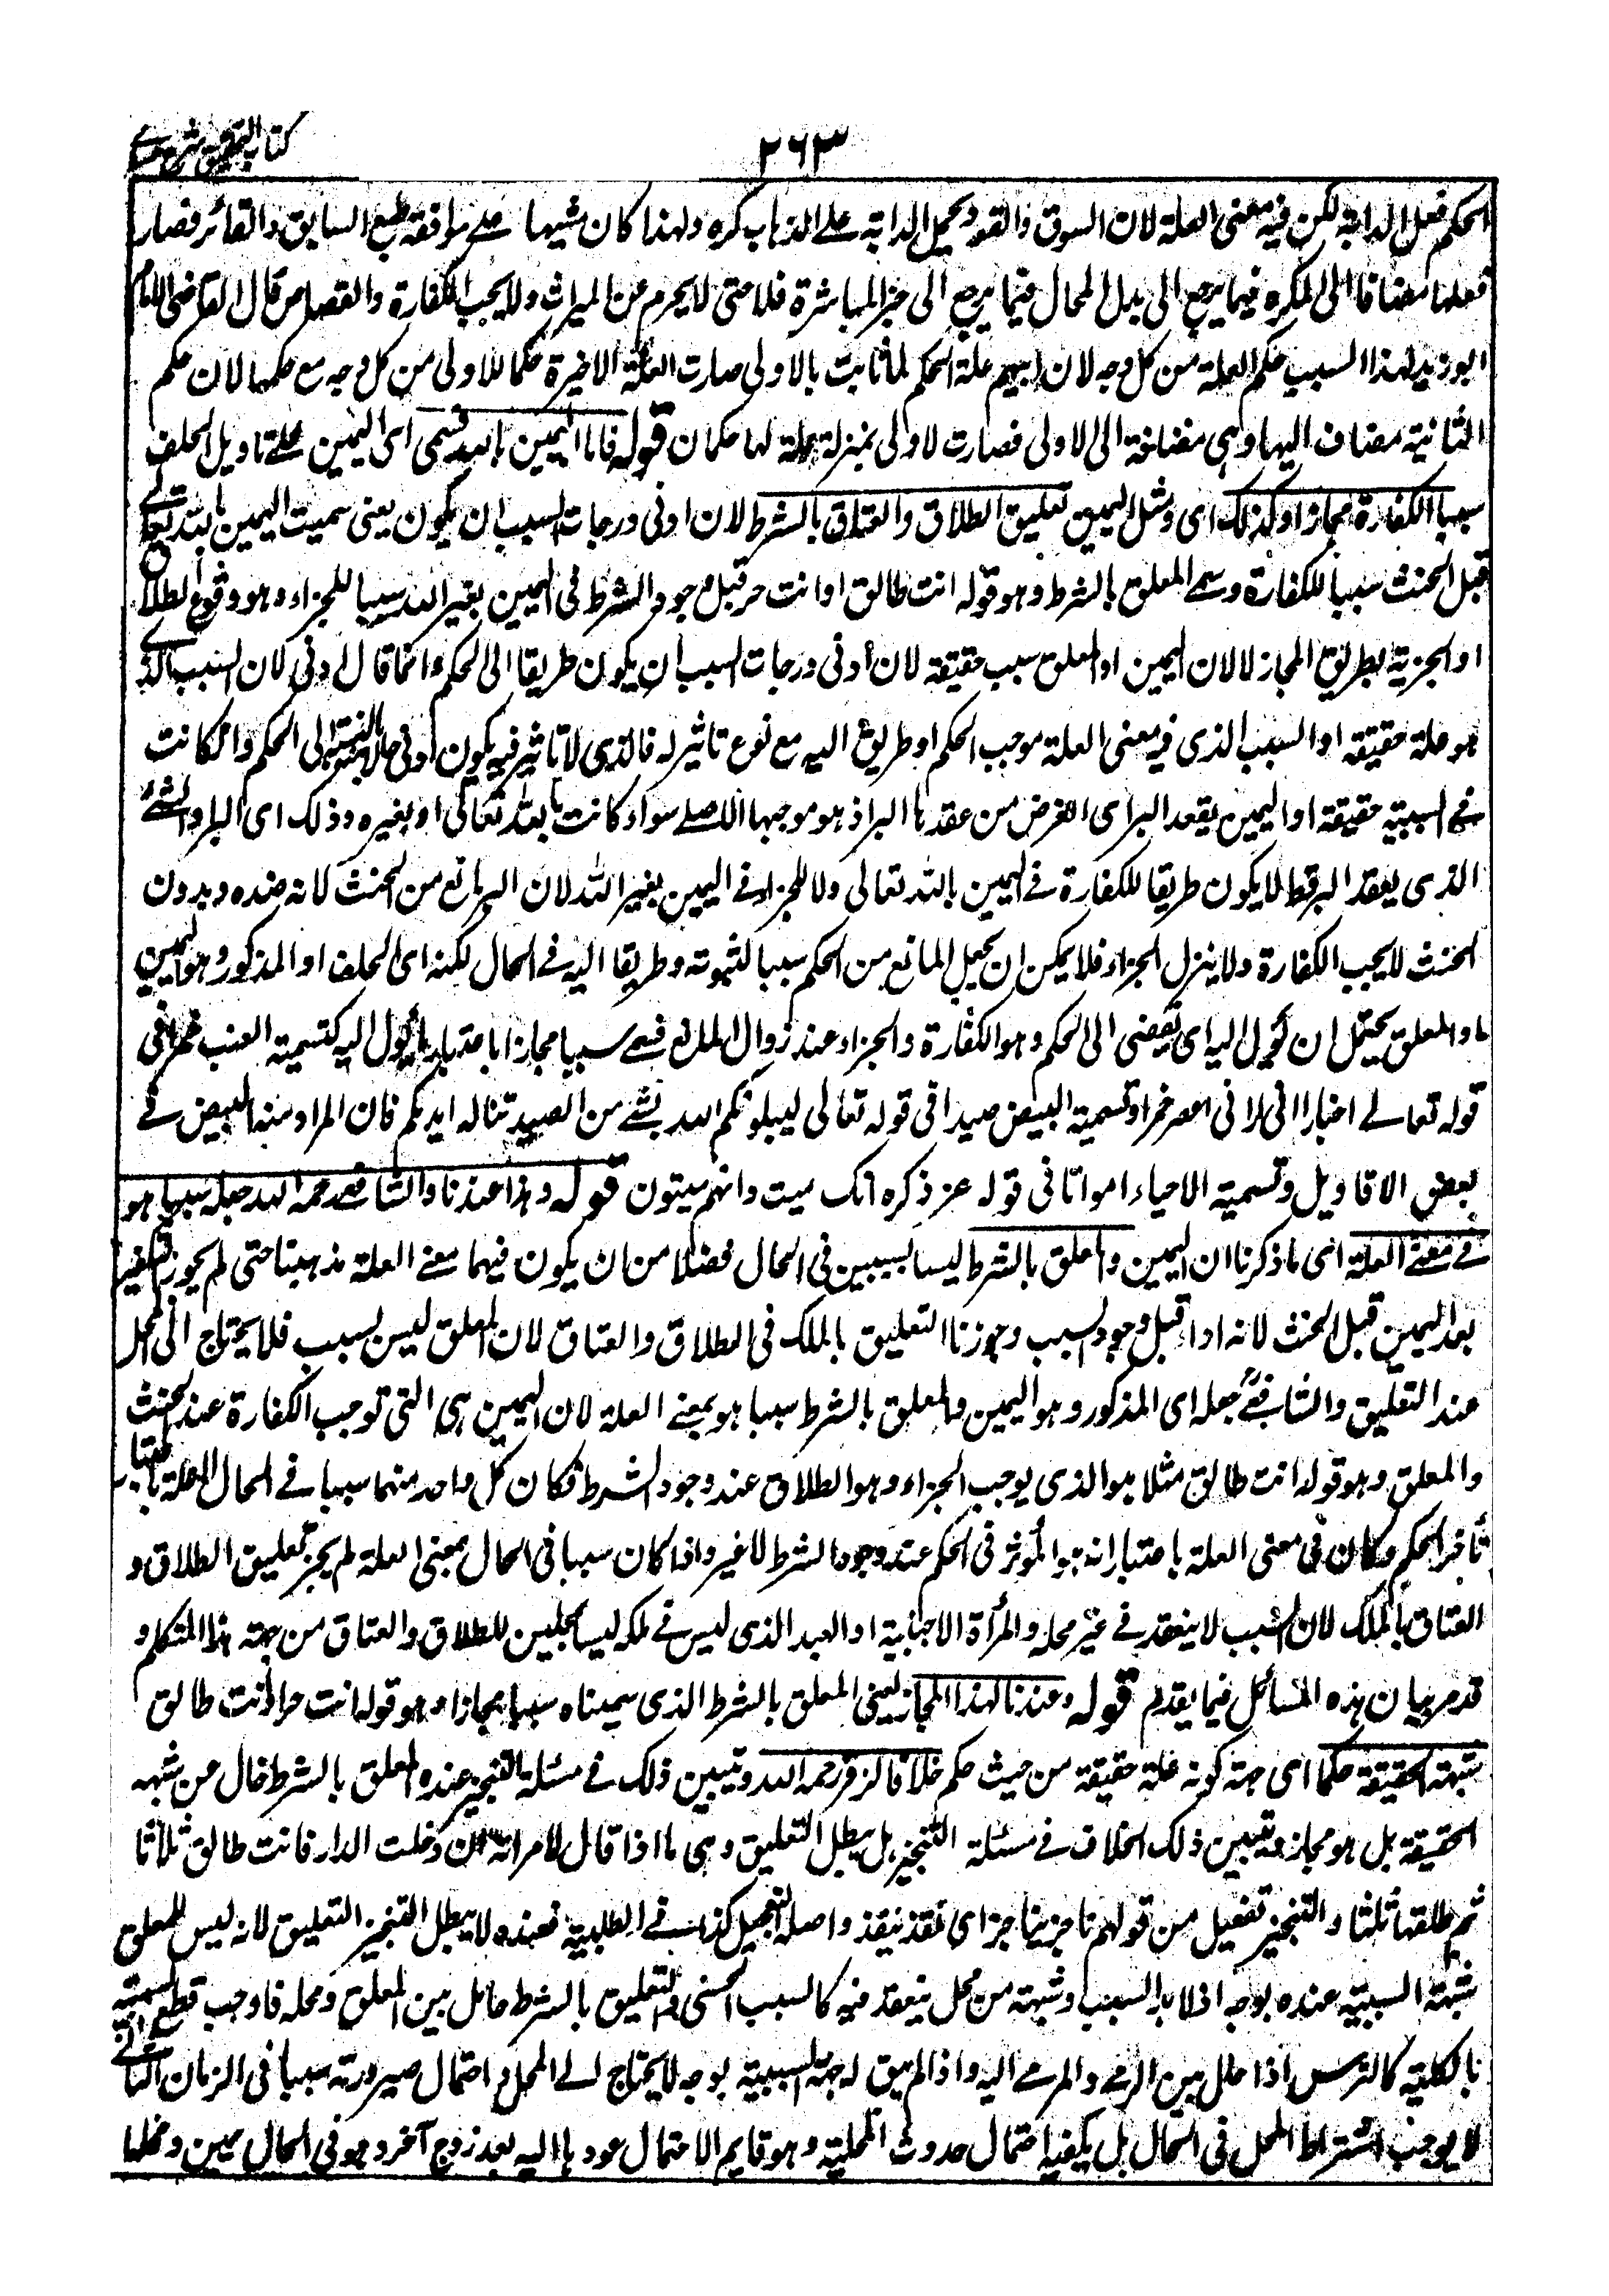 ٢٦٣
كتاب التحقيق شرح حسامي
الحكم فعل الدابة لكن فيه معنى العلة لان السوق والقود يحمل الدابة على الذهاب كره ولهذا كان مشيها على موافقة طبع السابق والقائر فصار
فعلها مضافا الى المكره فيما يرجع الى بدل المحال فيما يرجع الى جزاء المباشرة فلا حتى لا يحرم من الميراث ولا يجب الكفارة والقصاص قال القاضى الامام
ابوزيد لهذا السبب حكم العلة من كل وجه لان علة الحكم لما ثابت بالاولى صارت العلة الاخيرة حكما للاولى من كل وجه مع حكمها لان حكم
الثانية مضاف اليها وهى مضافة الى الاولى فصارت لاولى بمنزلة علة لها حكمان قوله فاما اليمين بالله فسمى اى اليمين على تاويل الحلف
سببا الكفارة مجازا وكذلك اى ومثل اليمين تعليق الطلاق والعتاق بالشرط لان ادنى درجات السبب ان يكون يعنى سميت اليمين بالله تعالى
قبل الحنث سببا للكفارة وسمى المعلق بالشرط وهو قوله انت طالق او انت حر قبل وجود الشرط فى اليمين بغير الله سببا للجزاء وهو وقوع الطلاق
او الجزية بطريق المجاز لا لان اليمين او المعلق سبب حقيقة لان ادنى درجات السبب ان يكون طريقا الى الحكم وانما قال ادنى لان السبب الذى
هو علة حقيقة او السبب الذى فيه معنى العلة موجب الحكم او طريق اليه مع نوع تاثير له فالذى لا تاثير فيه يكون ادنى حالا بالنسبة الى الحكم وان كانت
فى السببية حقيقة او اليمين يعقد البر اى الغرض من عقدها البر اذ هو موجبها الاصلى سواء كانت بالله تعالى او بغيره وذلك اى البر والشئ
الذى يعقد البر قط لا يكون طريقا للكفارة فى اليمين بالله تعالى ولا للجزاء فى اليمين بغير الله لان البر مانع من الحنث لانه ضده وبدون
الحنث لا يجب الكفارة ولا ينزل الجزاء فلا يمكن ان يجعل المانع من الحكم سببا لثبوته وطريقا اليه فى الحال لكنه اى الحلف او المذكور وهو اليمين
او المعلق يحتمل ان يؤل اليه اى يفضى الى الحكم وهو الكفارة والجزاء عند زوال المانع فسمى سببا مجازا باعتبار ما يؤل اليه كتسمية العنب خمرا فى
قوله تعالى اخبارا انى ارانى اعصر خمرا وتسمية البيض صيدا فى قوله تعالى ليبلونكم الله بشئ من الصيد تناله ايديكم فان المراد منه البيض فى
بعض الاقاويل وتسمية الاحياء امواتا فى قوله عز ذكره انك ميت وانهم ميتون قوله وهذا عندنا والشافعى رحمه الله جعله سببا هو
فى معنى العلة اى ما ذكرنا ان اليمين والمعلق بالشرط ليسا بسببين فى الحال فضلا من ان يكون فيهما معنى العلة مذهبنا حتى لم يجوز التكفير
بعد اليمين قبل الحنث لانه اداء قبل وجود السبب وجوزنا التعليق بالملك فى الطلاق والعتاق لان المعلق ليس بسبب فلا يحتاج الى محل
عند التعليق والشافعىؒ جعله اى المذكور وهو اليمين والمعلق بالشرط سببا هو بمعنى العلة لان اليمين هى التى توجب الكفارة عند الحنث
والمعلق وهو قوله انت طالق مثلا هو الذى يوجب الجزاء وهو الطلاق عند وجود الشرط فكان كل واحد منهما سببا فى الحال لا علة باعتبار
تأخر الحكم وكان فى معنى العلة باعتبار انه هو المؤثر فى الحكم عند وجود الشرط لا غير واذا كان سببا فى الحال بمعنى العلة لم يجز تعليق الطلاق و
العتاق بالملك لان السبب لا ينعقد فى غير محله والمرأة الاجنبية او العبد الذى ليس فى ملكه ليسا بمحلين للطلاق والعتاق من جهة هذا المتكلم و
قد مر بيان هذه المسائل فيما يقدم قوله وعندنا لهذا المجاز يعنى المعلق بالشرط الذى سميناه سببا مجازا وهو قوله انت حر او انت طالق
شبهة الحقيقة حكما اى جهة كونه علة حقيقة من حيث حكم خلافا لزفر رحمه الله ويتبين ذلك فى مسئلة التنجيز عنده المعلق بالشرط خال من شبهه
الحقيقة بل هو مجاز ويتبين ذلك الخلاف فى مسئلة التنجيز هل يبطل التعليق وهى ما اذا قال لامرأته ان دخلت الدار فانت طالق ثلاثا
ثم طلقها ثلثا والتنجيز تفعيل من قولهم ناجز بناجز اى نقد بنقد واصله التعجيل كذا فى الطلبية فعنده لا يبطل التنجيز التعليق لانه ليس للمعلق
شبهة السببية عنده بوجه اذ لا بد للسبب وشبهته من محل ينعقد فيه كالسبب الحسى والتعليق بالشرط حائل بين المعلق ومحله فاوجب قطع السببية
بالكلية كالترس اذا حلل بين الرمى والمرمى اليه واذا لم يبق له جهة السببية بوجه لا يحتاج الى المحل واحتمال صيرورته سببا فى الزمان الثانى
لا يوجب اشتراط المحل فى الحال بل يكفيه احتمال حدوث المحلية وهو قايم لاحتمال عودها اليه بعد زوج آخر وهو فى الحال يمين ومحلها